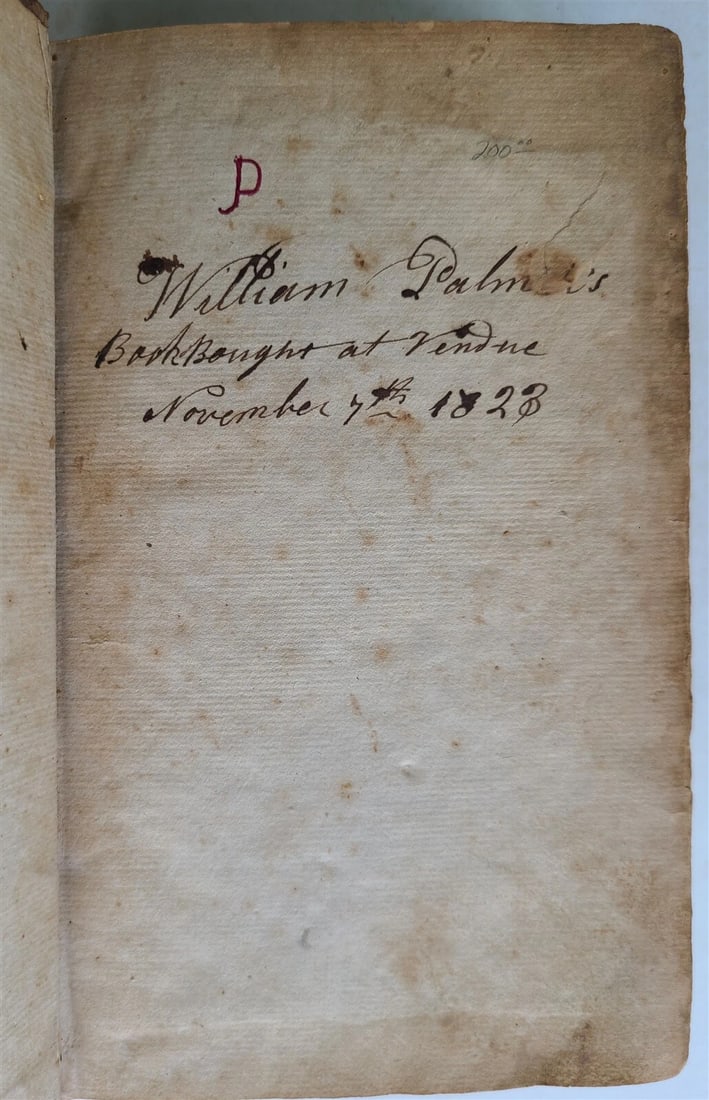 200.00
P
William Palmer's
Book Bought at Vendue
November 7th 1823